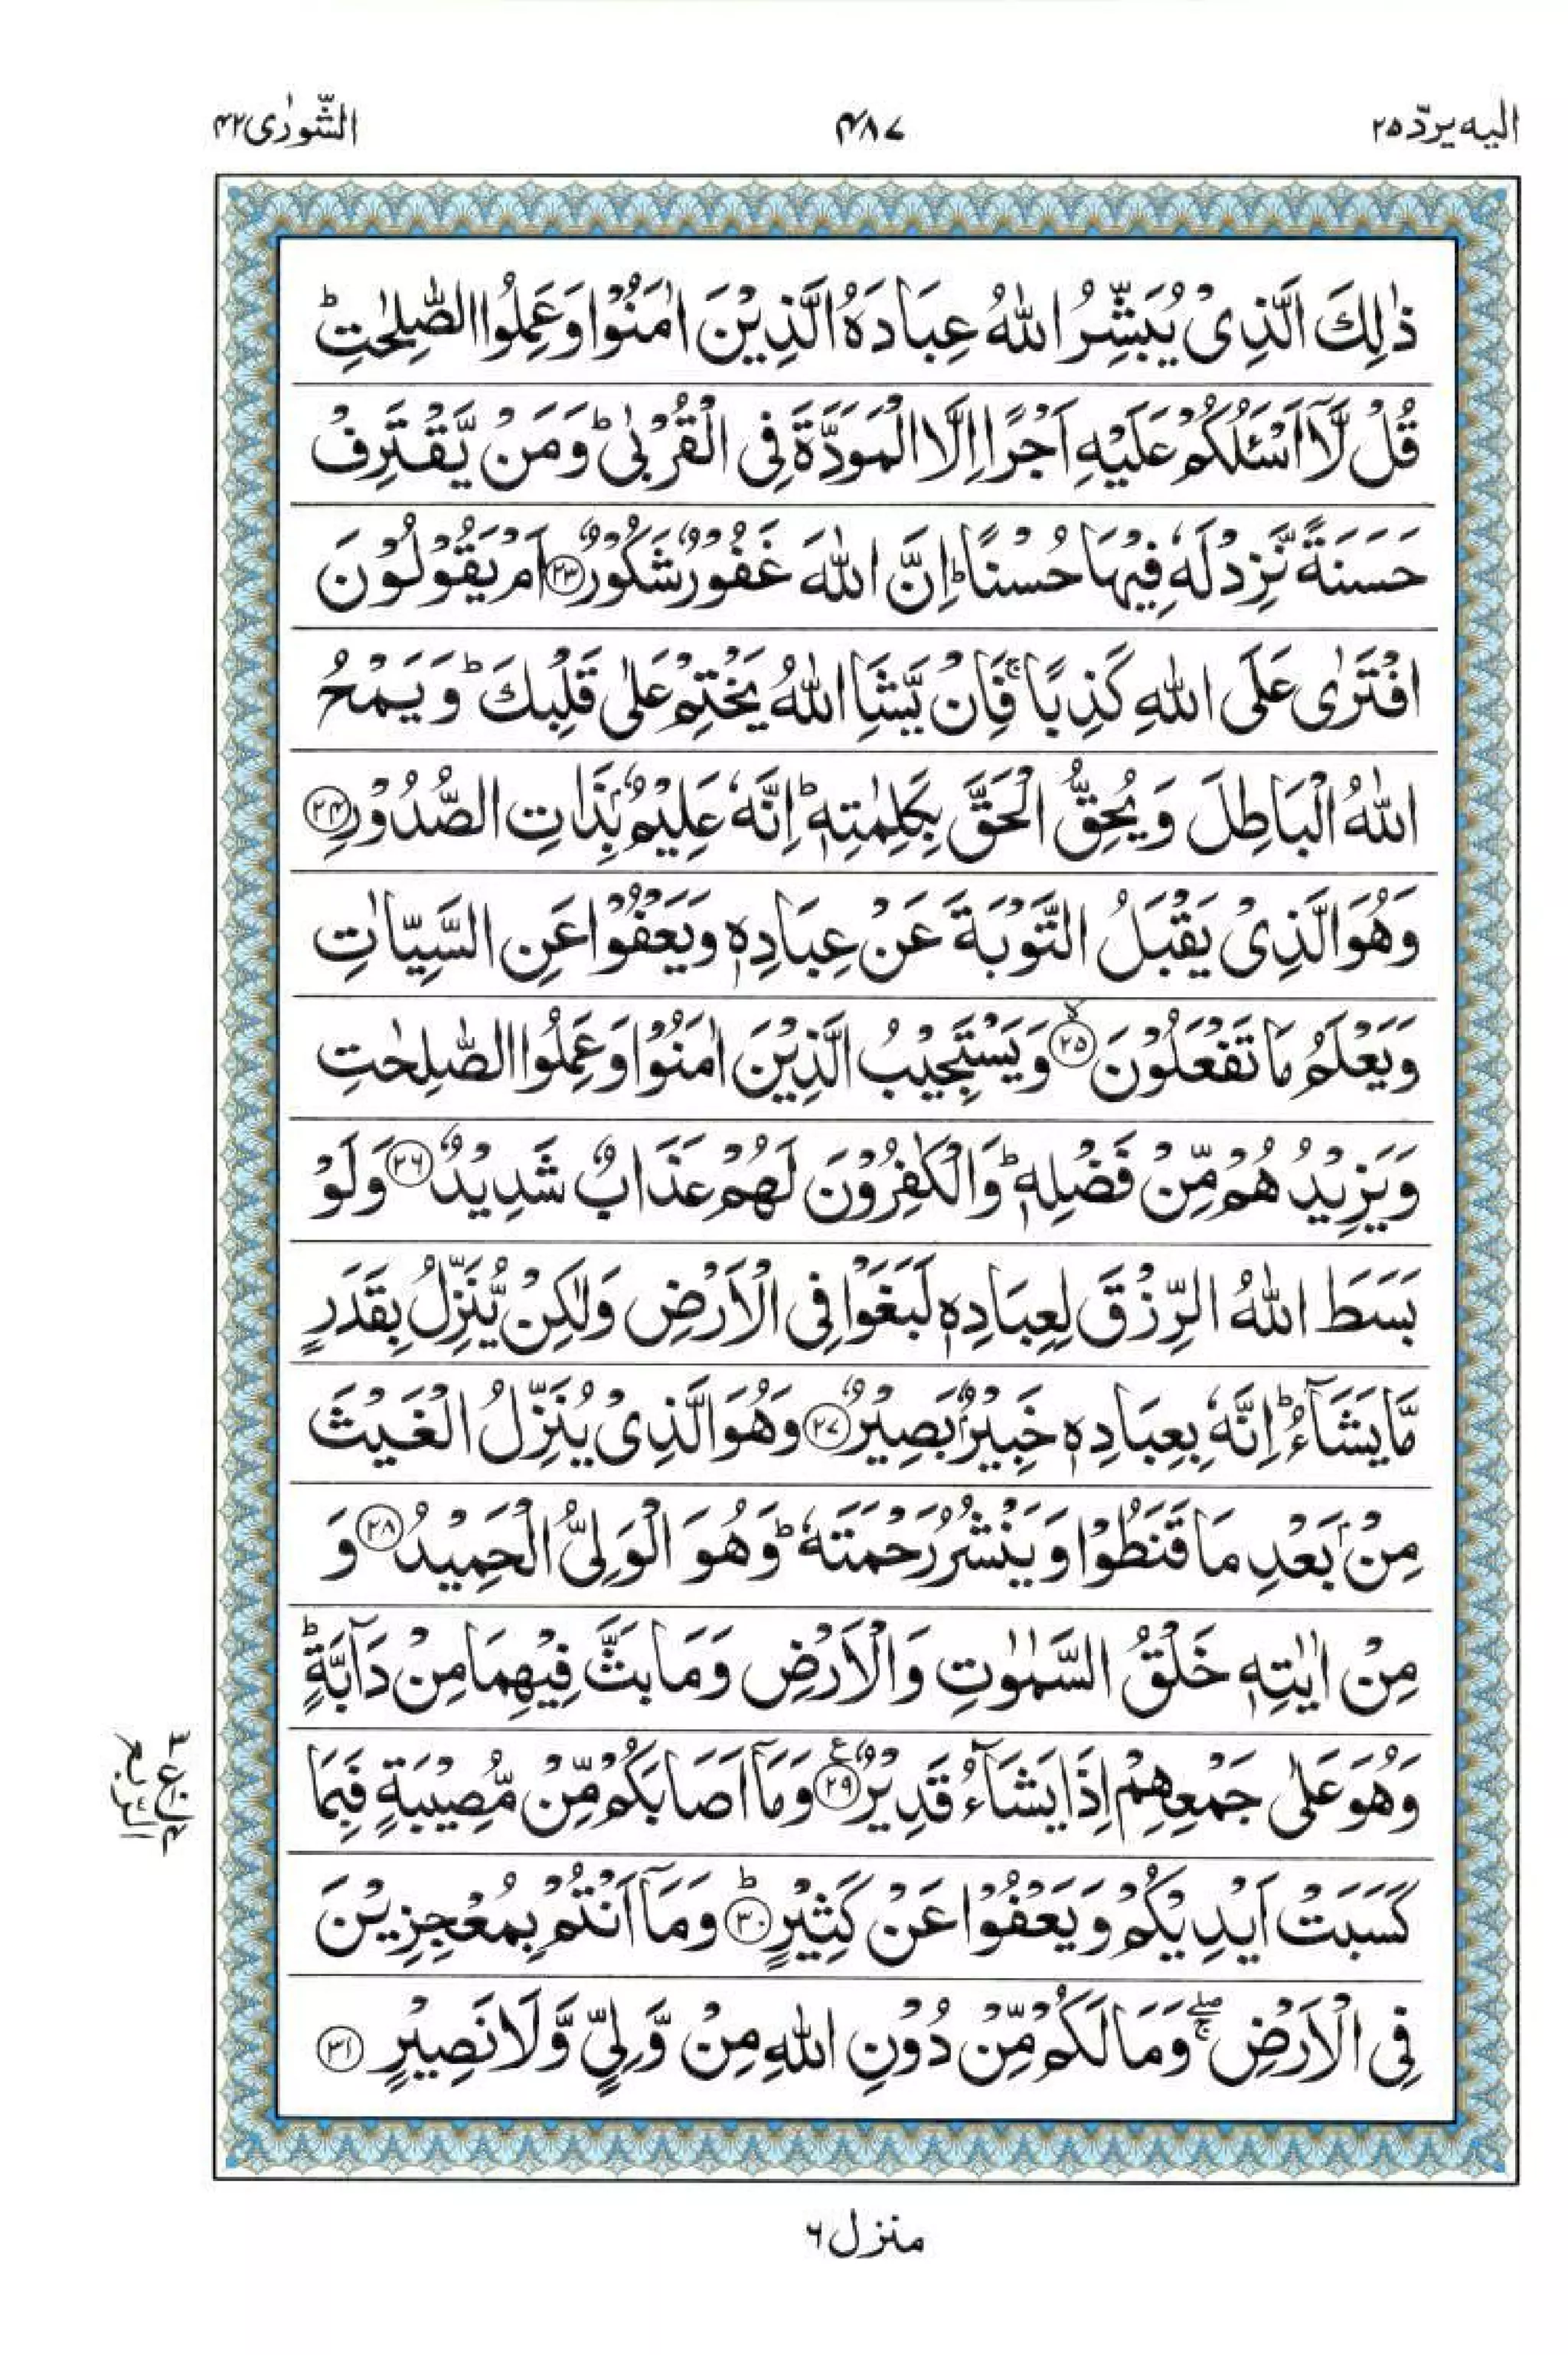 الیه یردّ ۲۵
۴۸۷
الشّورٰی ۴۲
ذٰلِكَ الَّذِیْ یُبَشِّرُ اللّٰهُ عِبَادَهُ الَّذِیْنَ اٰمَنُوْا وَعَمِلُوا الصّٰلِحٰتِؕ
قُلْ لَّاۤ اَسْـَٔلُكُمْ عَلَیْهِ اَجْرًا اِلَّا الْمَوَدَّةَ فِی الْقُرْبٰیؕ وَمَنْ یَّقْتَرِفْ
حَسَنَةً نَّزِدْ لَهٗ فِیْهَا حُسْنًاؕ اِنَّ اللّٰهَ غَفُوْرٌ شَكُوْرٌ ﴿۲۳﴾ اَمْ یَقُوْلُوْنَ
افْتَرٰی عَلَی اللّٰهِ كَذِبًاۚ فَاِنْ یَّشَاِ اللّٰهُ یَخْتِمْ عَلٰی قَلْبِكَؕ وَیَمْحُ
اللّٰهُ الْبَاطِلَ وَیُحِقُّ الْحَقَّ بِكَلِمٰتِهٖؕ اِنَّهٗ عَلِیْمٌۢ بِذَاتِ الصُّدُوْرِ ﴿۲۴﴾
وَهُوَ الَّذِیْ یَقْبَلُ التَّوْبَةَ عَنْ عِبَادِهٖ وَیَعْفُوْا عَنِ السَّیِّاٰتِ
وَیَعْلَمُ مَا تَفْعَلُوْنَۙ ﴿۲۵﴾ وَیَسْتَجِیْبُ الَّذِیْنَ اٰمَنُوْا وَعَمِلُوا الصّٰلِحٰتِ
وَیَزِیْدُهُمْ مِّنْ فَضْلِهٖؕ وَالْكٰفِرُوْنَ لَهُمْ عَذَابٌ شَدِیْدٌ ﴿۲۶﴾ وَلَوْ
بَسَطَ اللّٰهُ الرِّزْقَ لِعِبَادِهٖ لَبَغَوْا فِی الْاَرْضِ وَلٰكِنْ یُّنَزِّلُ بِقَدَرٍ
مَّا یَشَآءُؕ اِنَّهٗ بِعِبَادِهٖ خَبِیْرٌۢ بَصِیْرٌ ﴿۲۷﴾ وَهُوَ الَّذِیْ یُنَزِّلُ الْغَیْثَ
مِنْۢ بَعْدِ مَا قَنَطُوْا وَیَنْشُرُ رَحْمَتَهٗؕ وَهُوَ الْوَلِیُّ الْحَمِیْدُ ﴿۲۸﴾ وَ
مِنْ اٰیٰتِهٖ خَلْقُ السَّمٰوٰتِ وَالْاَرْضِ وَمَا بَثَّ فِیْهِمَا مِنْ دَآبَّةٍؕ
وَهُوَ عَلٰی جَمْعِهِمْ اِذَا یَشَآءُ قَدِیْرٌ ﴿۲۹﴾ ع وَمَاۤ اَصَابَكُمْ مِّنْ مُّصِیْبَةٍ فَبِمَا
كَسَبَتْ اَیْدِیْكُمْ وَیَعْفُوْا عَنْ كَثِیْرٍؕ ﴿۳۰﴾ وَمَاۤ اَنْتُمْ بِمُعْجِزِیْنَ
فِی الْاَرْضِ ۖۚ وَمَا لَكُمْ مِّنْ دُوْنِ اللّٰهِ مِنْ وَّلِیٍّ وَّلَا نَصِیْرٍ ﴿۳۱﴾
الربع
منزل ۶